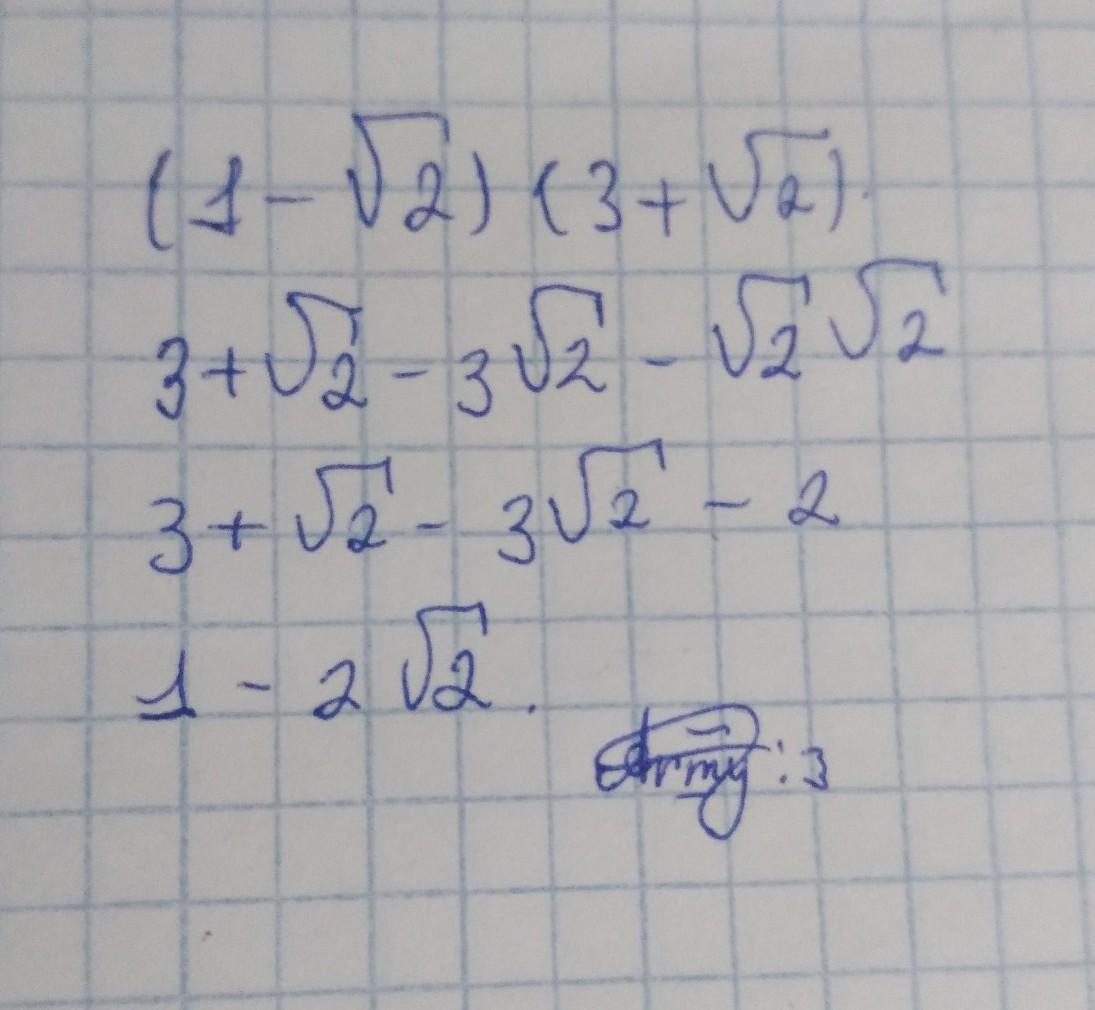 (1-√2)(3+√2).
3+√2-3√2-√2√2
3+√2-3√2-2
1-2√2.
Army:3